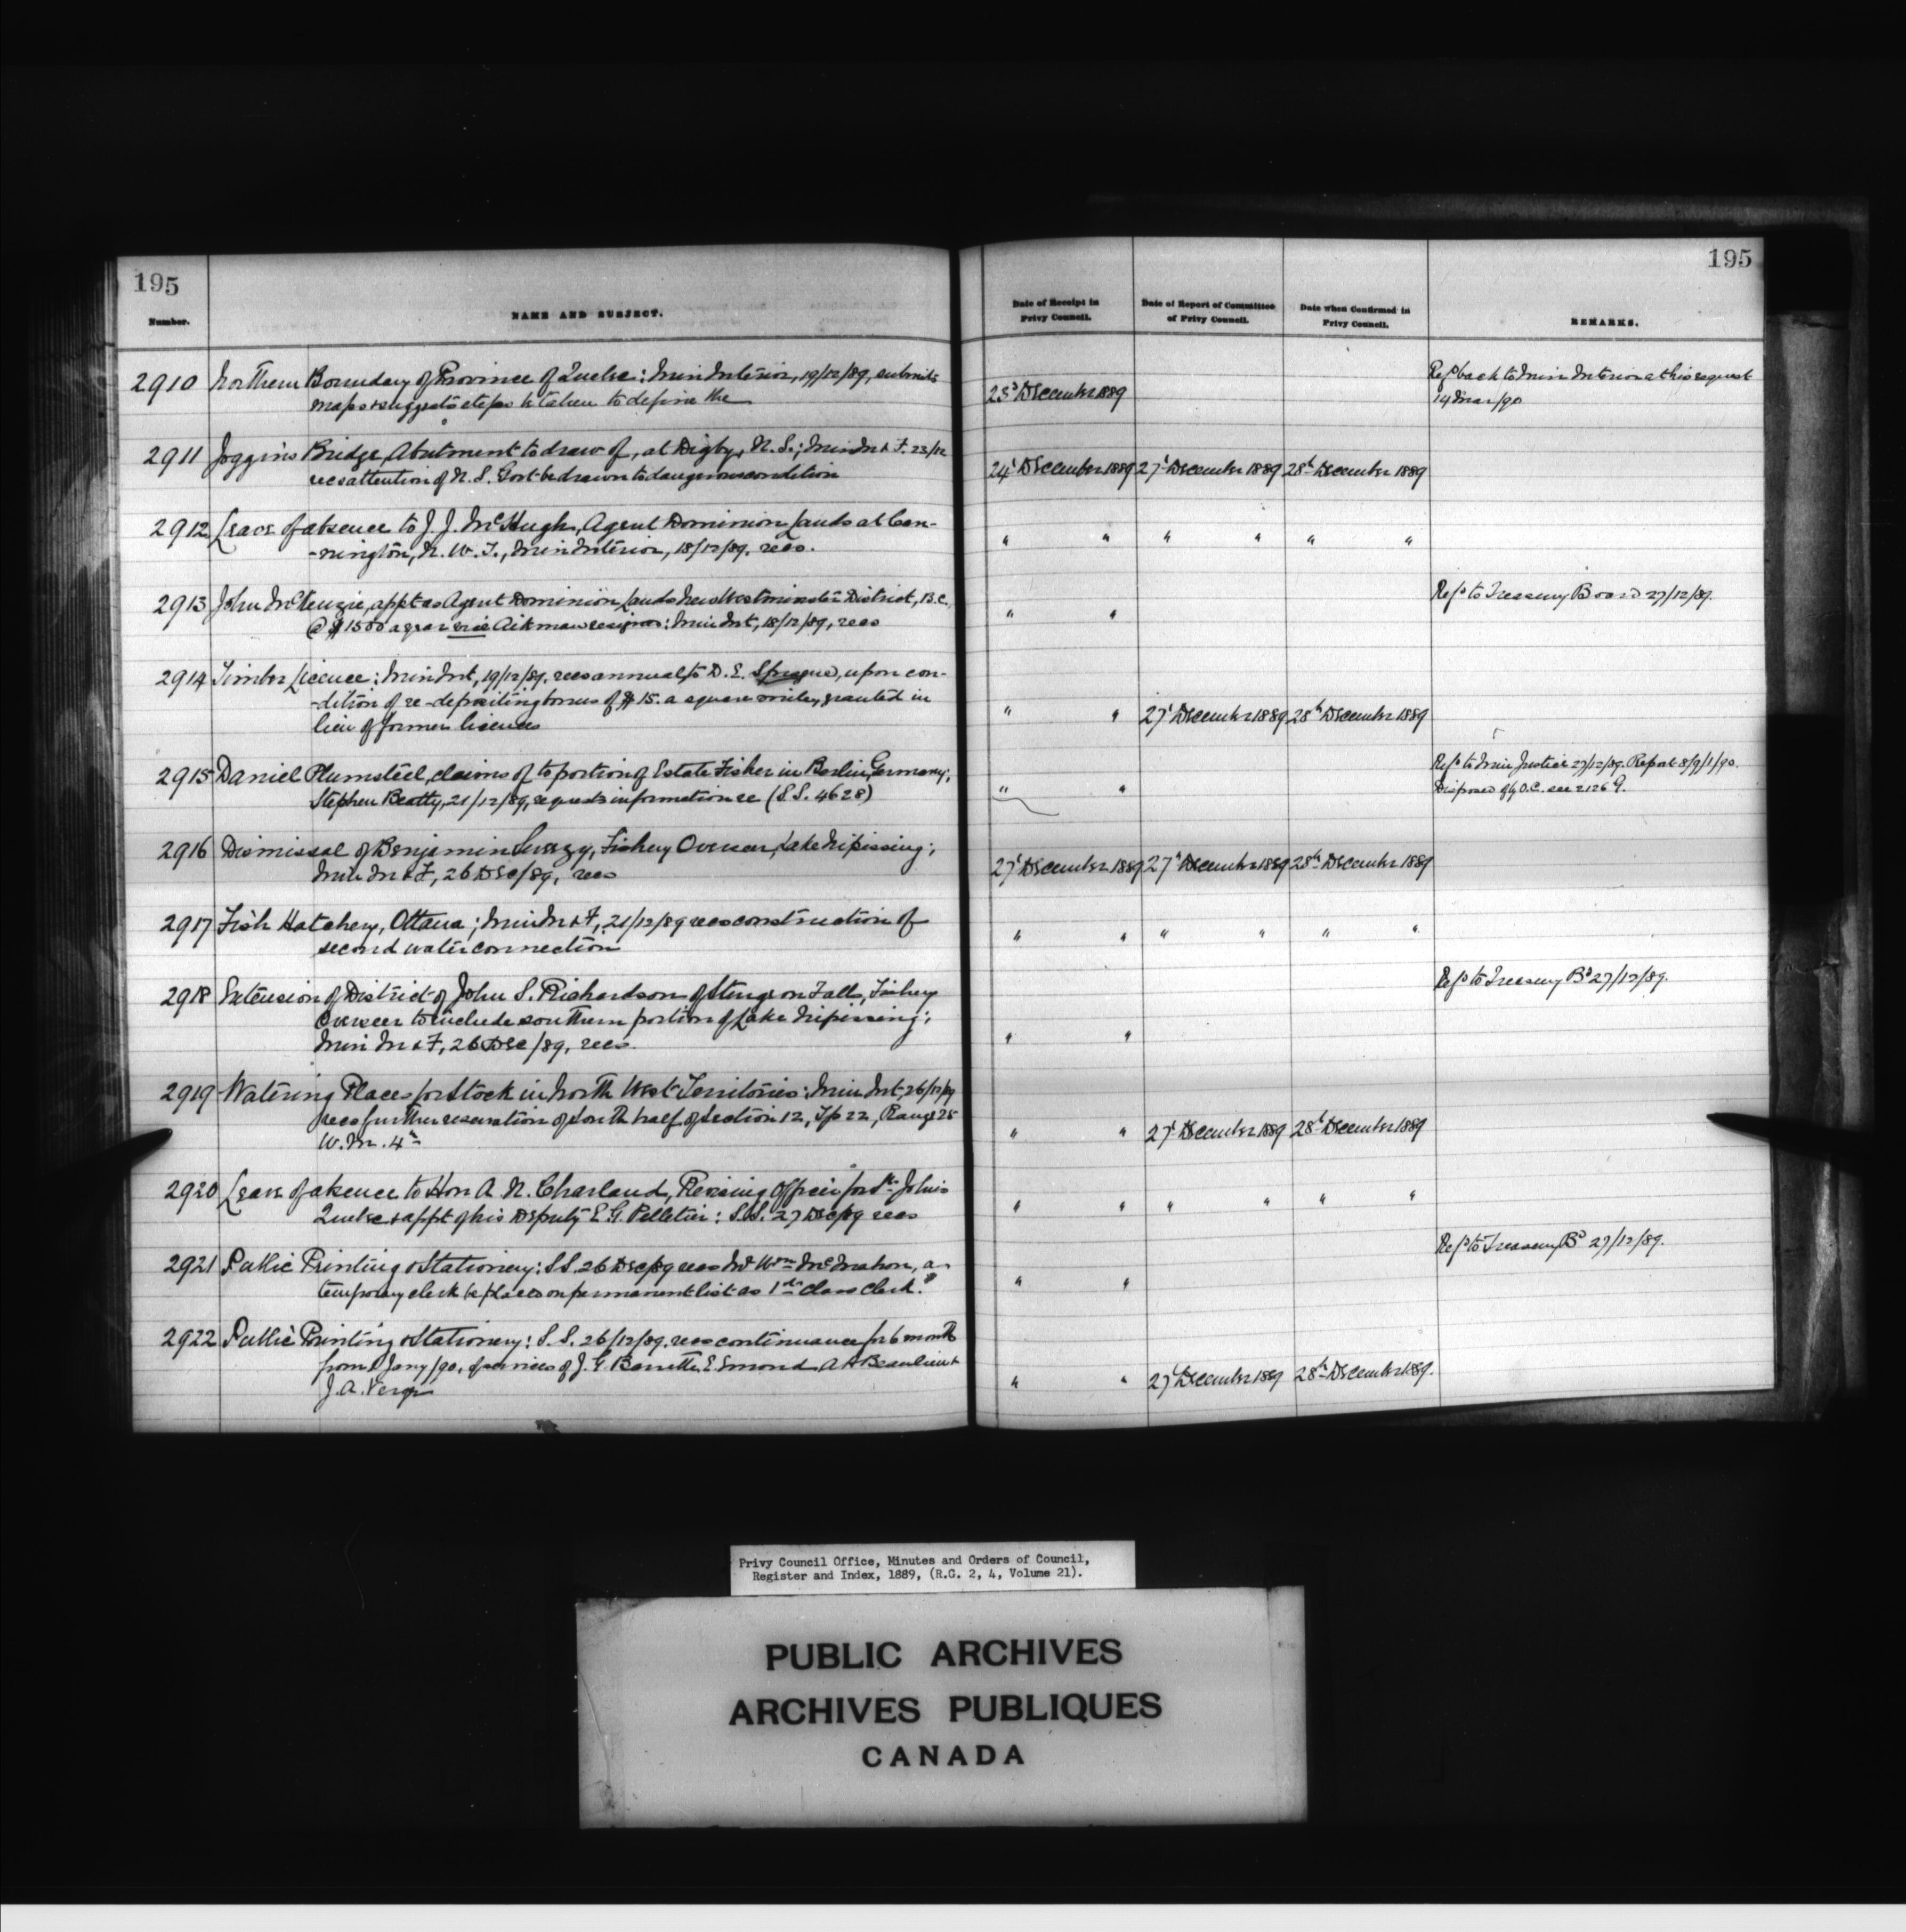 195
195
Number.
NAME AND SUBJECT.
Date of Receipt in
Privy Council.
Date of Report of Committee
of Privy Council.
Date when Confirmed in
Privy Council.
REMARKS.
2910 Northern Boundary of Province of Quebec: Min Interior, 19/12/89, submits
maps & suggests steps be taken to define the
23d December 1889
Refd back to Min Interior at his request
14 Mar/90
2911 Joggins Bridge, Abutment to draw of, at Digby, N.S.; Min M & F. 23/12
recs attention of N.S. Govt be drawn to dangerous condition
24th December 1889 27th December 1889 28th December 1889
2912 Leave of absence to J. J. McHugh, Agent Dominion Lands at Can-
-nington, N.W.T., Min Interior, 18/12/89. recs.
" " " " " "
2913 John McKenzie, appt as Agent Dominion Lands New Westminster District, B.C.
@ $1500 a year vice Aikman resigned: Min Int, 18/12/89, recs
" "
Refd to Treasury Board 27/12/89.
2914 Timber Licence: Min Int, 19/12/89. recs annual to D. E. Sprague, upon con-
-dition of re-depositing bonus of $15. a square mile, granted in
lieu of former licences
" " 27th December 1889 28th December 1889
2915 Daniel Plumsteel, claims of to portion of Estate Fisher in Berlin, Germany;
Stephen Beatty, 21/12/89, requests information re (S.S. 4628)
" "
Refd to Min Justice 27/12/89. Repeat 8/9/1/90.
Disposed of by O.C. see 2126 G.
2916 Dismissal of Benjamin Swezy, Fishery Overseer, Lake Nipissing;
Min M & F, 26 Dec/89, recs
27th December 1889 27th December 1889 28th December 1889
2917 Fish Hatchery, Ottawa; Min M & F, 21/12/89 recs construction of
second water connection
" " " " " "
2918 Extension of District of John S. Richardson of Sturgeon Falls, Fishery
Overseer to include southern portion of Lake Nipissing;
Min M & F, 26 Dec/89, recs.
" "
Refd to Treasury Bd 27/12/89.
2919 Watering Places for Stock in North West Territories: Min Int, 26/12/89
recs further reservation of South half of Section 12, Tp 22, Range 25
W.M. 4th
" " 27th December 1889 28th December 1889
2920 Leave of absence to Hon A. N. Charland, Revising Officer for St. Johns
Quebec & appt of his Deputy E. G. Pelletier: S.S. 27 Dec/89 recs
" " " " " "
2921 Public Printing & Stationery: S.S. 26 Dec/89 recs Mr Wm McMahon, a
temporary clerk be placed on permanent list as 1st class clerk.
" "
Refd to Treasury Bd 27/12/89.
2922 Public Printing & Stationery: S.S. 26/12/89. recs continuance for 6 months
from 1 Jany/90, of services of J. G. Barrette, E. Emond, A. A. Beaulieu &
J. A.
" " 27th December 1889 28th December 1889.
Privy Council Office, Minutes and Orders of Council,
Register and Index, 1889, (R.G. 2, 4, Volume 21).
PUBLIC ARCHIVES
ARCHIVES PUBLIQUES
CANADA